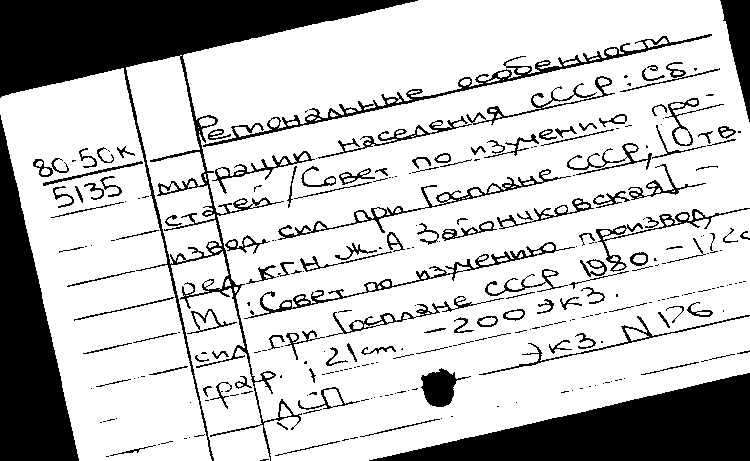 Региональные особенности
80-50к
5135
миграции населения СССР: Сб.
статей / Совет по изучению про-
извод. сил при Госплане СССР; [Отв.
ред. к.г.н. Ж.А Зайончковская]. –
М.: Совет по изучению производ.
сил при Госплане СССР, 1980. –
граф. ; 21 cm. – 200 экз.
ДСП
Экз. N 176